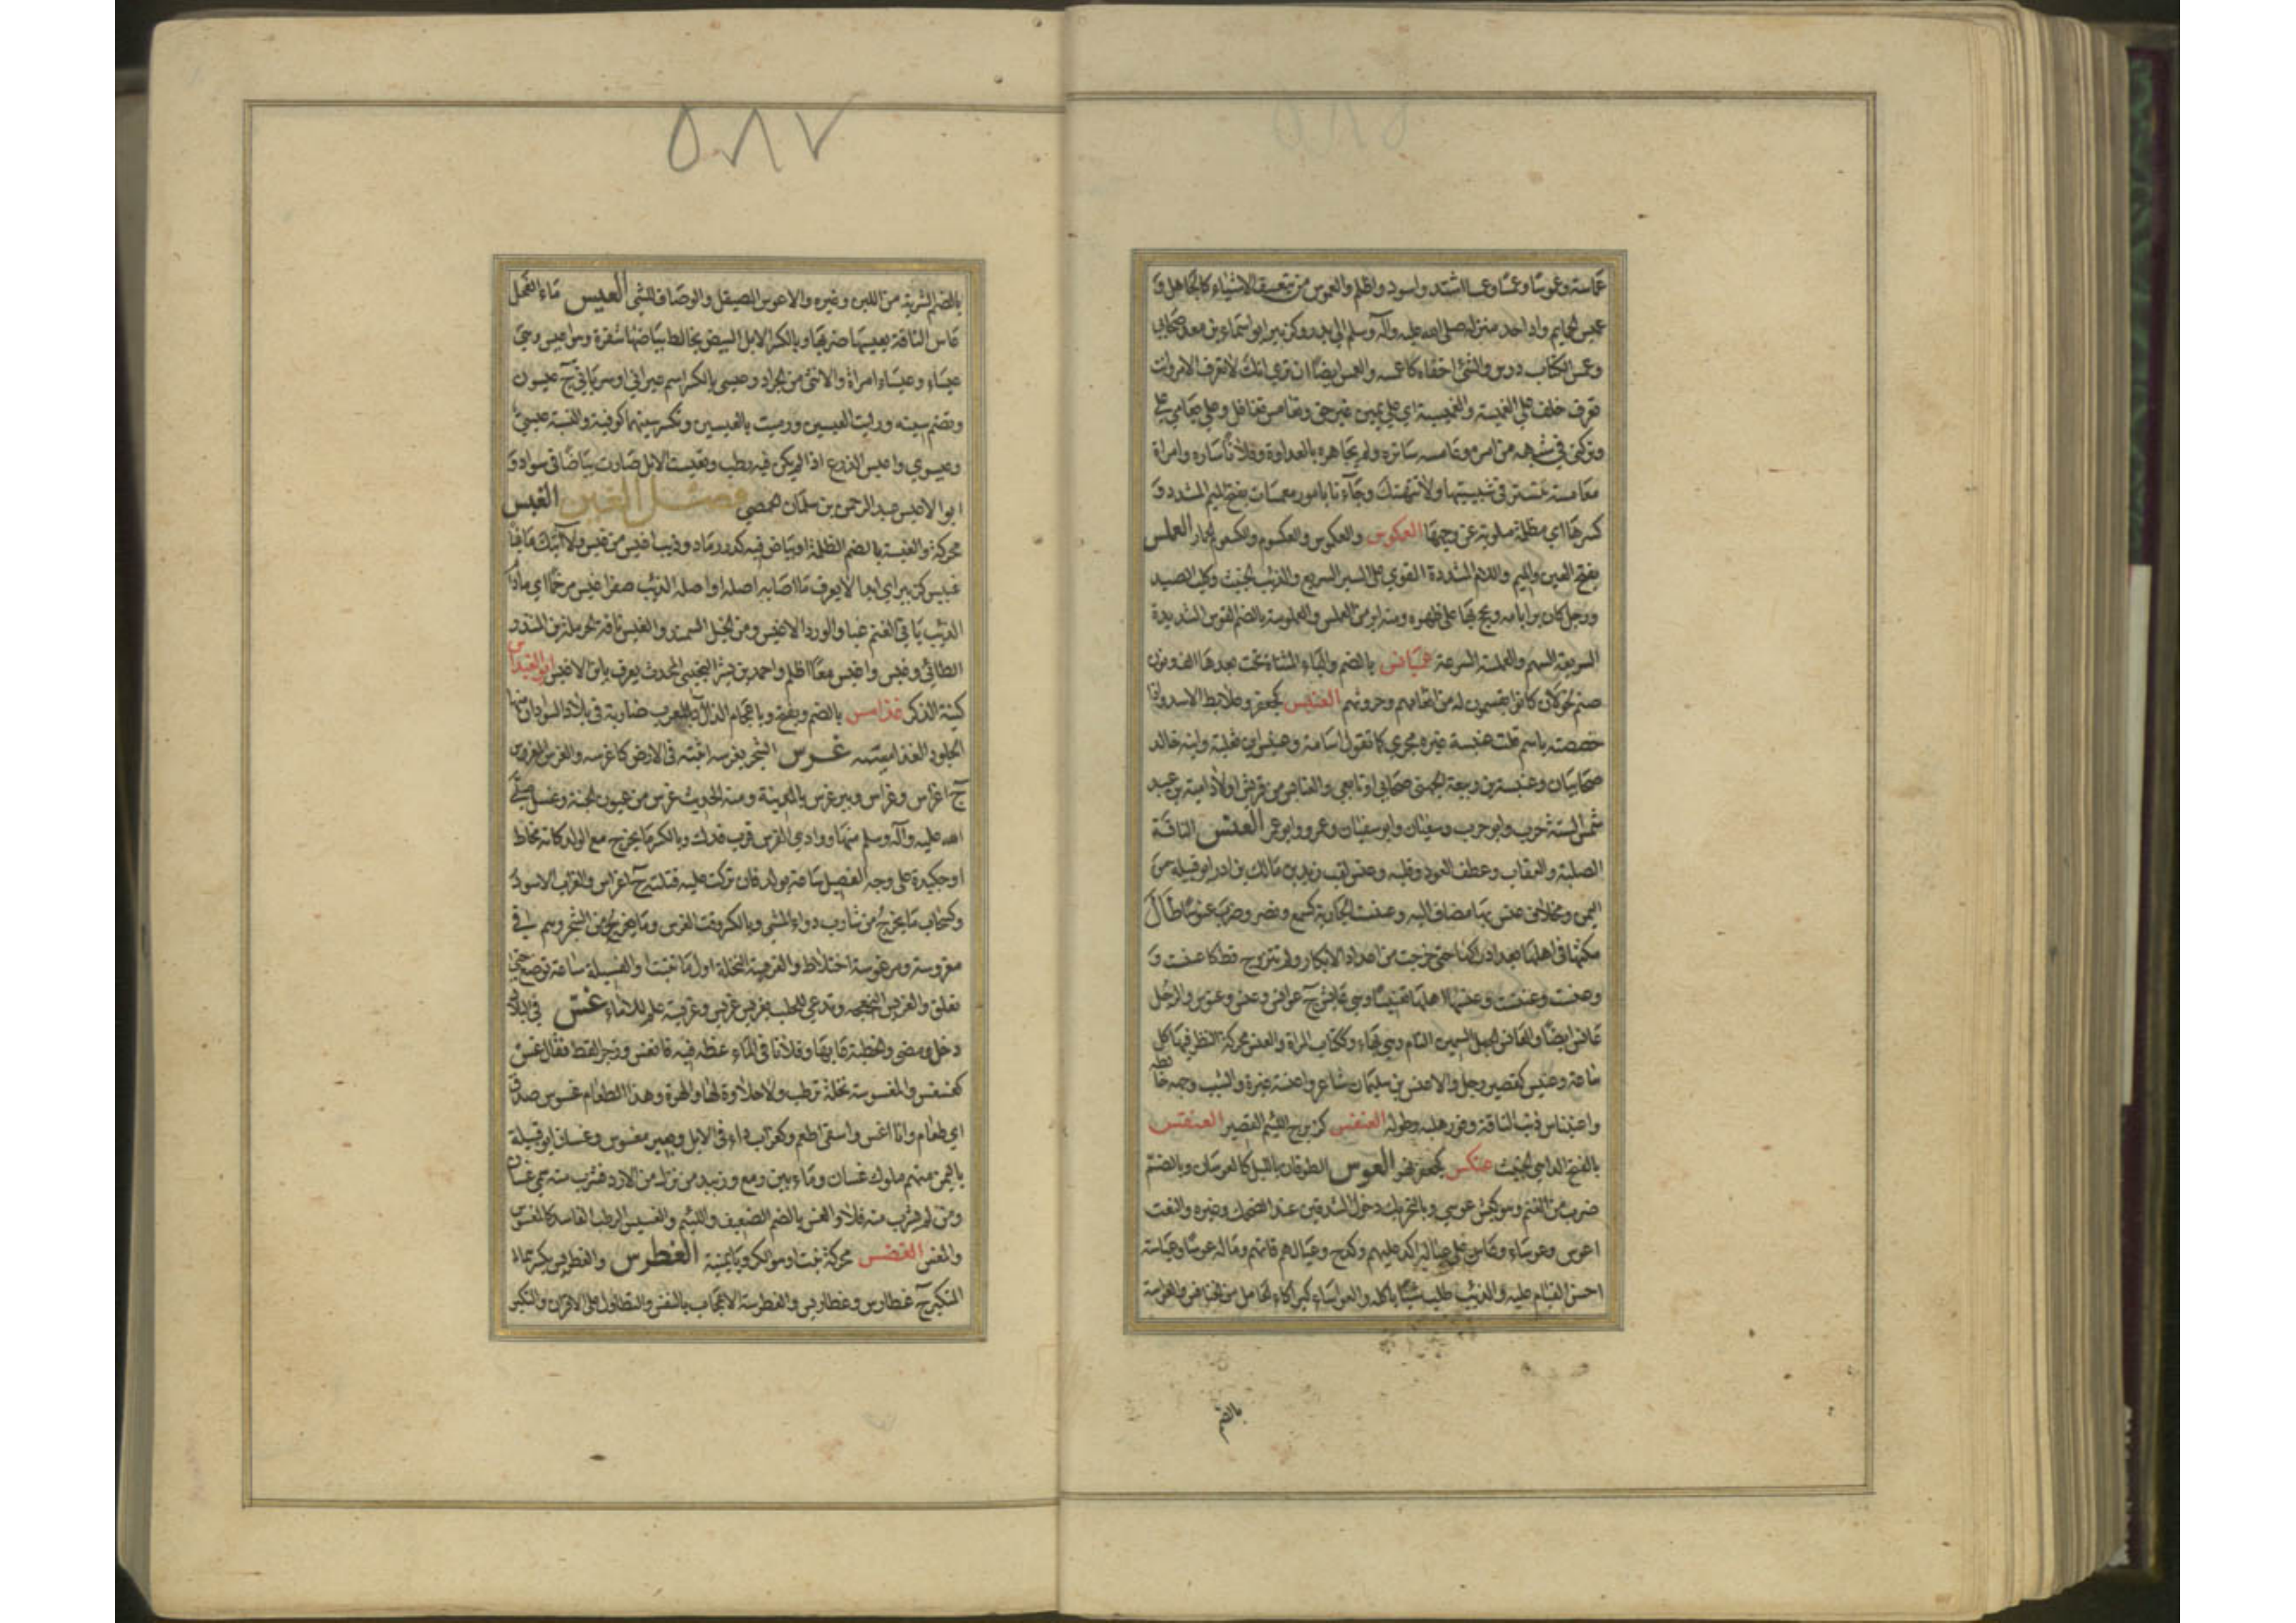 عماسة وعموسا وعمسا وعمسا اشتد واسود واظلم والعموس من يتعسف الاشياء كالجاهل و
عميس الحمايم واد احد منزله صلى الله عليه وآله وسلم الى بدر وكزبير ابو اسماء بن معد صحابي
وعمس الكتاب درس والشئ اخفاه كاعمسه والعمس ايضا ان تري انك لا تعرف الامر وانت
تعرف حلف على العميسة والغميسة اي على يمين غير حق وتعامس تغافل وعلي تعامى علي
وتركني في شبهه من امره وعامسه ساتره ولم يجاهره بالعداوة وفلانا ساره وامراة
معامسة تتستر في شبيبتها ولا تتهتك وجاءنا بامور معمسات بفتح الميم المشددة و
كسرها اي مظلمة ملوية عن وجهها العمكوس والعكموس والكعسوم الحمار العملس
بفتح العين والميم واللام المشددة القوي على السير السريع والذئب الخبيث وكلب الصيد
ورجل كان برا بامه ويحج بها على ظهره ومنه ابر من العملس والعملوسة بالضم القوس الشديدة
السريعة السهم والعملسة السرعة عميانس بالضم والياء المثناة تحت بعدها الف ونون
صنم لخولان كانوا يقسمون له من انعامهم وحروثهم العنبس كجعفر وعلابط الاسد واذا
خصصته باسم قلت عنبسة غير مجرى كما تقول اسامة وعنبس بن ثعلبة وابنه خالد
صحابيان وعنبسة بن ربيعة الجهني صحابي او تابعي والعنابس من قريش اولاد امية بن عبد
شمس الستة حرب وابو حرب وسفيان وابو سفيان وعمرو وابو عمر العنس الناقة
الصلبة والعقاب وعطف العود وقلبه وعنس لقب زيد بن مالك بن ادد ابو قبيلة من
اليمن ومخلاف عنس بها مضاف اليه وعنست الجارية كسمع ونصر وضرب عنوسا طال
مكثها في اهلها بعد ادراكها حتى خرجت من اعداد الابكار ولم تتزوج قط كاعنست و
وعنست وعنست وعنسها اهلها تعنيسا وهي عانس ج عوانس وعنس وعنوس والرجل
عانس ايضا والعانس الجمل السمين التام وهي بهاء وككتاب المراة والعنس محركة النظر فيها كل
ساعة وعنيس كقصير رجل والاعنس بن سليمان شاعر واعنسه غيره والشيب وجهه خالطه
واعنيناس ذنب الناقة وفور هلبه وطوله العنفس كزبرج اللئيم القصير العنقس
بالفتح الداهي الخبيث عنكس كجعفر نهر العوس الطوفان بالليل كالعوسان وبالضم
ضرب من الغنم وهو كبش عوسي وبالتحريك دخول الشدقين عند الضحك وغيره والنعت
اعوس وعوساء وعاس على عياله اكد عليهم وكدح وعياله هم قاتهم وماله عوسا وعياسة
احسن القيام عليه والذئب طلب شيئا ياكله والعواساء كبراكاء الحامل من الخنافس والعواسة
بالضم
٥٨٧
بالضم الشربة من اللبن وغيره والاعوس الصيقل والوصاف للشئ العيس ماء الفحل
عاس الناقة يعيسها ضربها وبالكسر الابل البيض يخالط بياضها شقرة وهو اعيس وهي
عيساء وعيساء امراة والانثى من الجراد وعيسى بالكسر اسم عبراني او سرياني ج عيسون
وتضم سينه ورايت العيسين ومررت بالعيسين وتكسر سينهما كوفية والنسبة عيسي
وعيسوي واعيس الزرع اذا لم يكن فيه رطب وتعيست الابل صارت بياضا في سواد و
ابو الاعيس عبد الرحمن بن سلمان حمصي فصل الغين الغبس
محركة والغبسة بالضم الظلمة او بياض فيه كدرة رماد وذئب اغبس من غبس ولا آتيك ما غبا
غبيس كزبير اي ابدا لا يعرف ما اصله او اصله الذئب صغر اغبس مرخما اي مادام
الذئب ياتي الغنم غبا والورد الاغبس من الخيل السمند والغبس ناقة لحرملة بن المنذر
الطائي وغبس واغبس معا اظلم واحمد بن بشر التجيبي المحدث يعرف بابن الاغبس ابو الغيداس
كنية الذكر غدامس بالضم ويفتح وباعجام الذال بالمغرب ضاربة في بلاد السودان منها
الجلود الغدامسية غرس الشجر يغرسه اثبته في الارض كاغرسه والغرس المغروس
ج اغراس وغراس وبير غرس بالمدينة ومنه الحديث غرس من عيون الجنة وغسل صلى
الله عليه وآله وسلم منها ووادي الغرس قرب فدك وبالكسر ما يخرج مع الولد كانه مخاط
او جليدة على وجه الفصيل ساعة يولد فان تركت عليه قتلته ج اغراس والغراب الاسود
وكسحاب ما يخرج من شارب دواء المشي وبالكسر وقت الغرس وما يغرس من الشجر وهم في
مغروسة ومرغوسة اختلاط والغريسة النخلة اول ما تنبت والفسيلة ساعة توضع حتى
تعلق والغريس النعجة وتدعى للحلب بغرس غرس وغريسة علم للاماء غس في البلاد
دخل ومضى والخطبة عابها وفلانا في الماء غطه فيه فانغس وزجر القط فقال غس
كغسغس والمغسوسة نخلة ترطب ولا حلاوة لها والهرة وهذا الطعام غسوس صدق
اي طعام وانا اغس واسقى اطعم وكغراب داء في الابل وبعير مغسوس وغسان ابو قبيلة
باليمن منهم ملوك غسان وماء بين رمع وزبيد من نزل من الازد فشرب منه سمي غسان
ومن لم يشرب منه فلا والغس بالضم الضعيف واللئيم والغسيس الرطب الفاسد كالمغسوس
والمغس الغضس محركة نبت او هو الكرويا يمنية الغطرس والغطريس بكسرهما
المتكبر ج غطارس وغطاريس والغطرسة الاعجاب بالنفس والتطاول على الاقران والتكبر